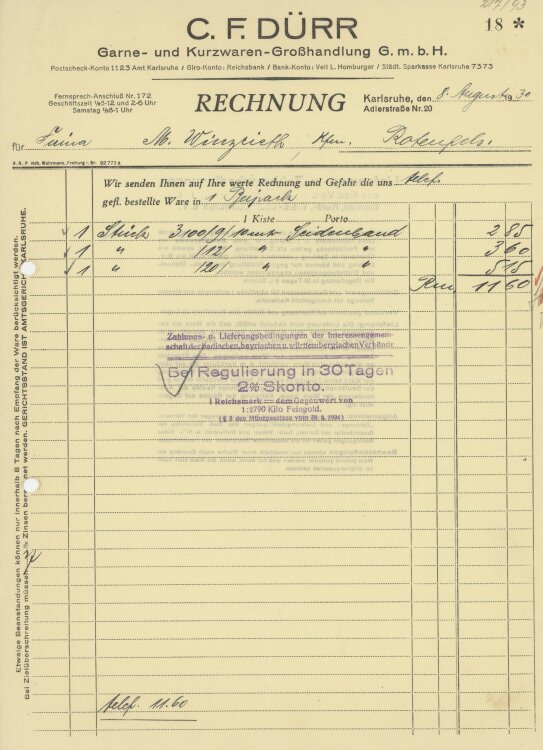 217/93
18 *
C. F. DÜRR
Garne- und Kurzwaren-Großhandlung G. m. b. H.
Postscheck-Konto 1123 Amt Karlsruhe / Giro-Konto: Reichsbank / Bank-Konto: Veit L. Homburger / Städt. Sparkasse Karlsruhe 7373
Fernsprech-Anschluß Nr. 172
Geschäftszeit ½8-12 und 2-6 Uhr
Samstag ½8-1 Uhr
RECHNUNG
Karlsruhe, den 8. August 1930
Adlerstraße Nr. 20
für Firma M. Winzrieth, Kfm. Rotenfels.
Wir senden Ihnen auf Ihre werte Rechnung und Gefahr die uns telef.
gefl. bestellte Ware in 1 Beipack
1 Kiste Porto
1 Stück 3100/9/10 mtr Seidenband 2 85
1 " /12/ " " 3 60
1 " 120/ " " 5 15
Rm 11 60
Zahlungs- u. Lieferungsbedingungen der Interessengemein-
schaft der badischen, bayrischen u. württembergischen Verbände
Bei Regulierung in 30 Tagen
2% Skonto.
1 Reichsmark = dem Gegenwert von
1:2790 Kilo Feingold.
(§ 3 des Münzgesetzes vom 30. 8. 1924)
telef. 11.60
Etwaige Beanstandungen können nur innerhalb 8 Tagen nach Empfang der Ware berücksichtigt werden.
Bei Zielüberschreitung müssen % Zinsen berechnet werden. GERICHTSSTAND IST AMTSGERICHT KARLSRUHE.